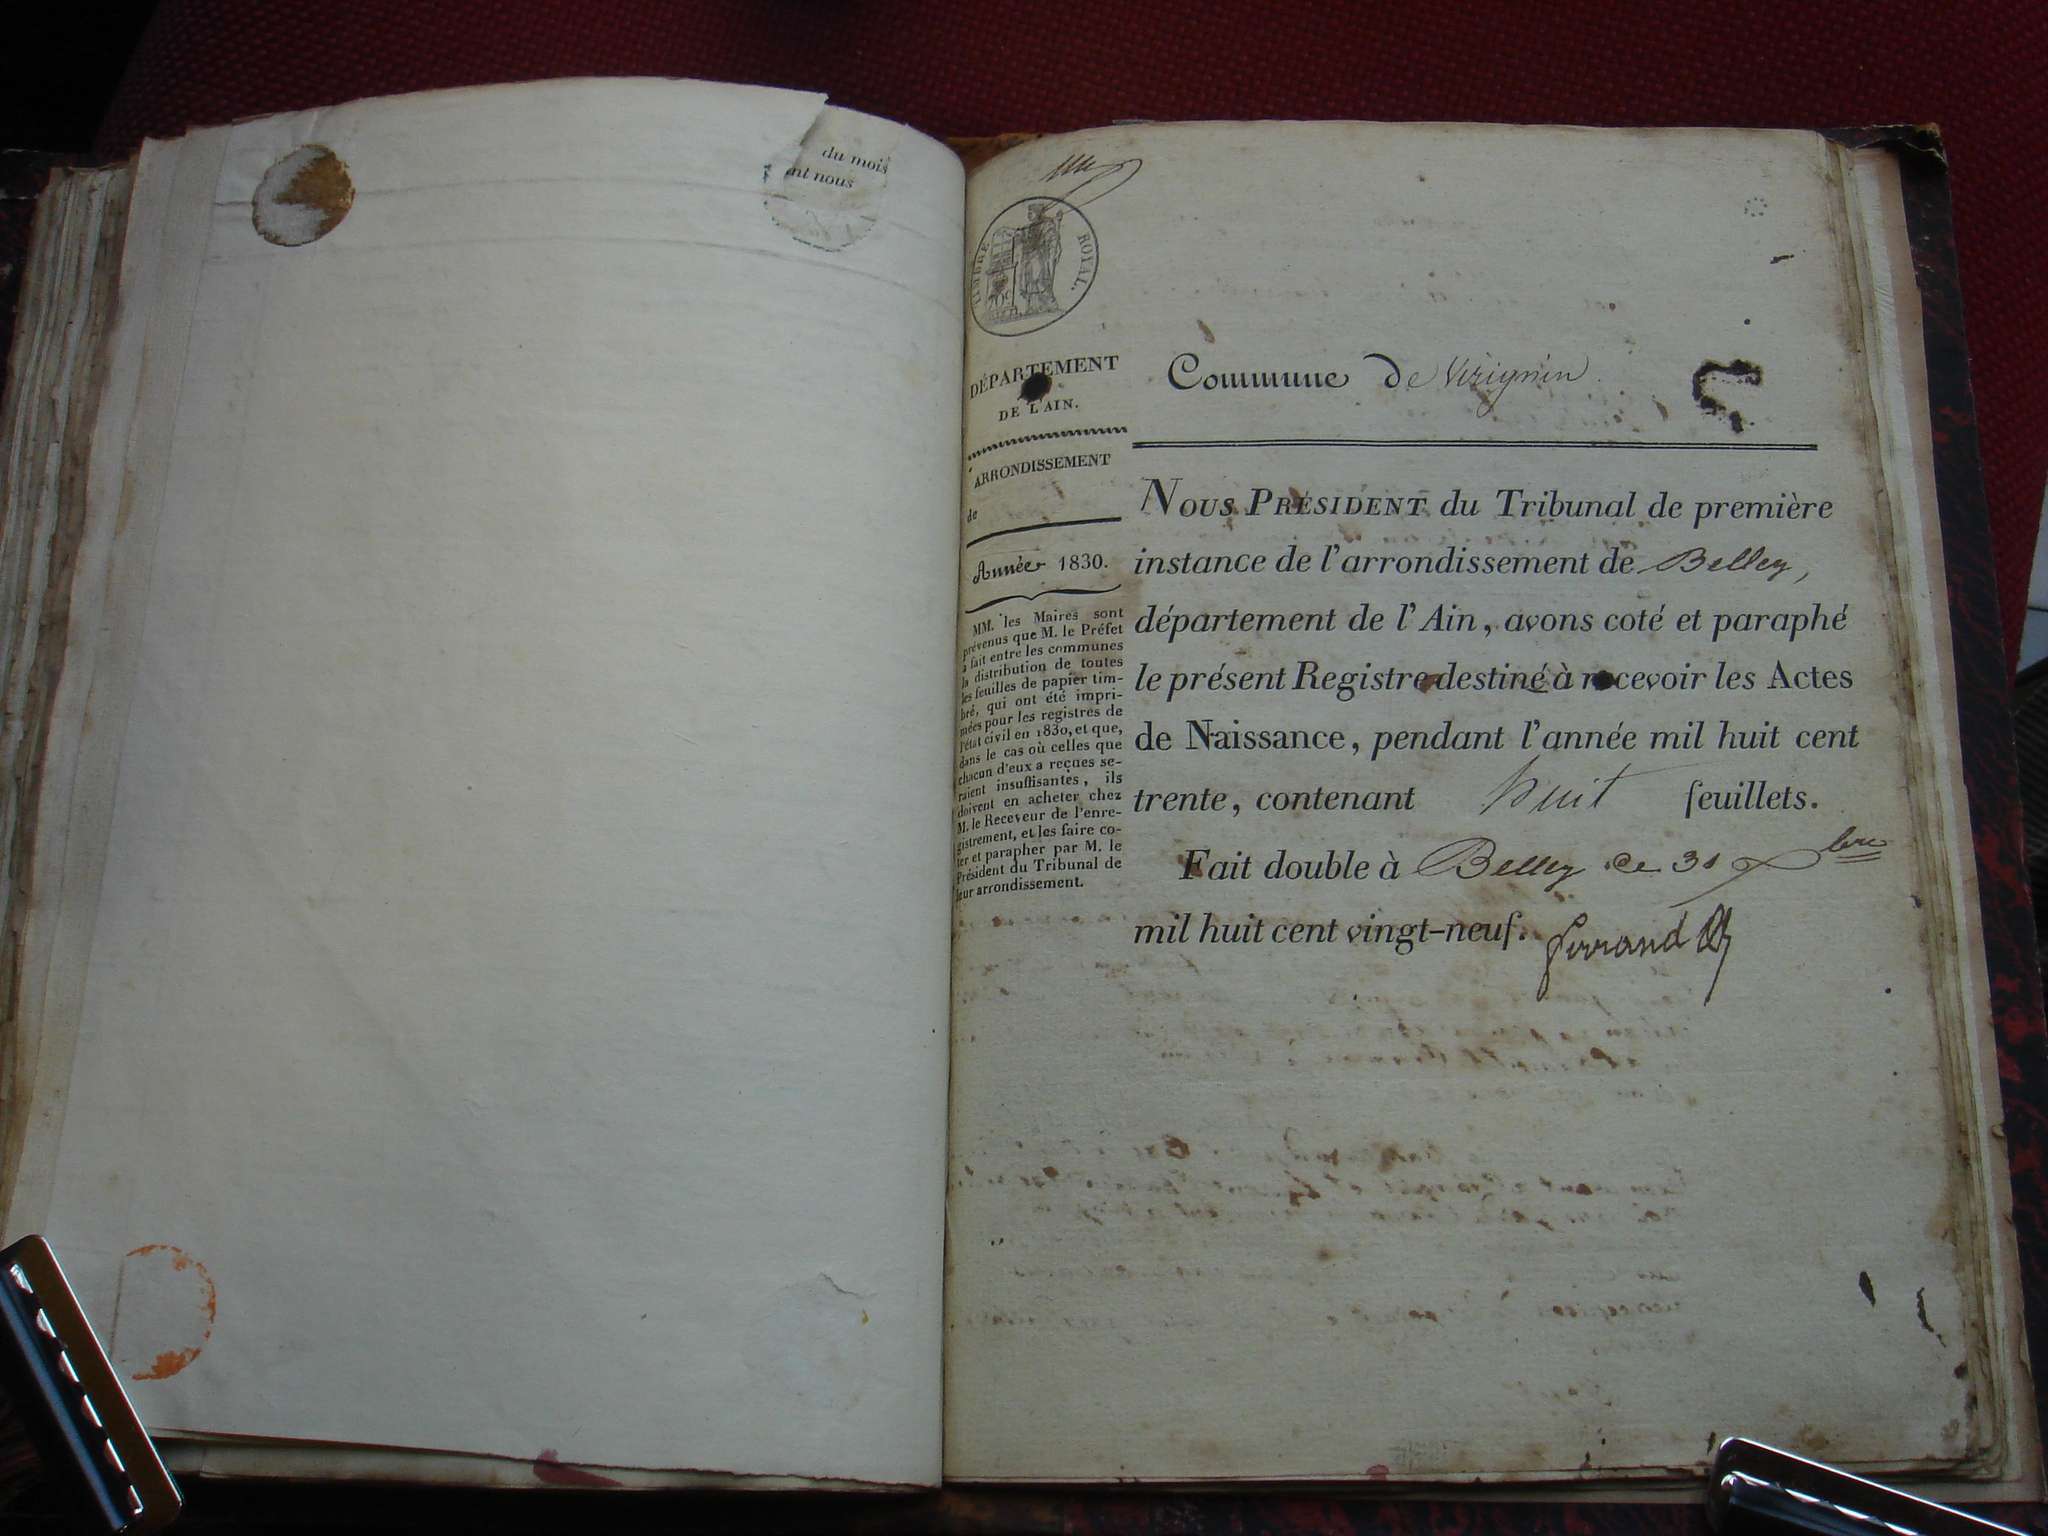 du mois
nt nous
TIMBRE ROYAL.
DÉPARTEMENT
DE L'AIN.
ARRONDISSEMENT
de
Année 1830.
MM. les Maires sont
prévenus que M. le Préfet
a fait entre les communes
la distribution de toutes
les feuilles de papier tim-
bré, qui ont été impri-
mées pour les registres de
l'état civil en 1830, et que,
dans le cas où celles que
chacun d'eux a reçues se-
raient insuffisantes, ils
doivent en acheter chez
M. le Receveur de l'enre-
gistrement, et les faire co-
ter et parapher par M. le
Président du Tribunal de
leur arrondissement.
Commune de Virignin
NOUS PRÉSIDENT du Tribunal de première
instance de l'arrondissement de Belley,
département de l'Ain, avons coté et paraphé
le présent Registre destiné à recevoir les Actes
de Naissance, pendant l'année mil huit cent
trente, contenant huit feuillets.
Fait double à Belley ce 31 Xbre
mil huit cent vingt-neuf.